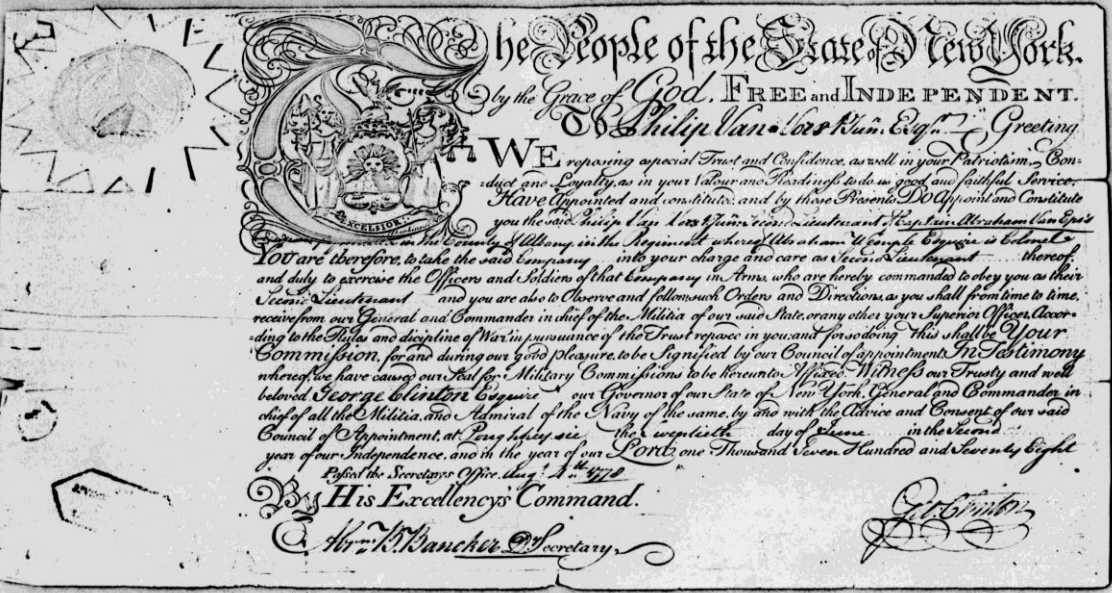 The People of the State of New York.
by the Grace of God, FREE and INDEPENDENT.
To Philip Van Junr. Esqr. Greeting
WE reposing especial Trust and Confidence, as well in your Patriotism, Con-
-duct and Loyalty, as in your Valour and Readiness to do us good and faithful Service;
Have Appointed and constituted, and by those Presents, DO Appoint and Constitute
you the said Philip Van Junr. Lieutenant Captain Abraham Van Eps's
EXCELSIOR.
in the County of Albany, in the Regiment whereof Abraham Wemple Esquire is Colonel
You are therefore, to take the said Company into your charge and care as Second Lieutenant thereof,
and duty to exercise the Officers and Soldiers of that Company in Arms, who are hereby commanded to obey you as their
Second Lieutenant and you are also to Observe and follow such Orders and Directions, as you shall from time to time,
receive from our General and Commander in chief of the Militia of our said State, or any other your Superior Officer, Accor-
-ding to the Rules and dicipline of War, in pursuance of the Trust reposed in you; and for so doing this shall be Your
Commission, for and during our good pleasure, to be Signified by our Council of appointment. In Testimony
whereof, we have caused our Seal for Military Commissions to be hereunto Affixed. Witness our Trusty and well
beloved George Clinton Esquire our Governor of our State of New York, General and Commander in
chief of all the Militia, and Admiral of the Navy of the same, by and with the Advice and Consent of our said
Council of Appointment, at Poughkeepsie the twentieth day of June in the Second
year of our Independence, and in the year of our Lord, one Thousand Seven Hundred and Seventy Eight
Passed the Secretarys Office, Augt. 4th 1778
By His Excellency's Command.
Geo. Clinton
Abrm. B. Bancker Dy Secretary